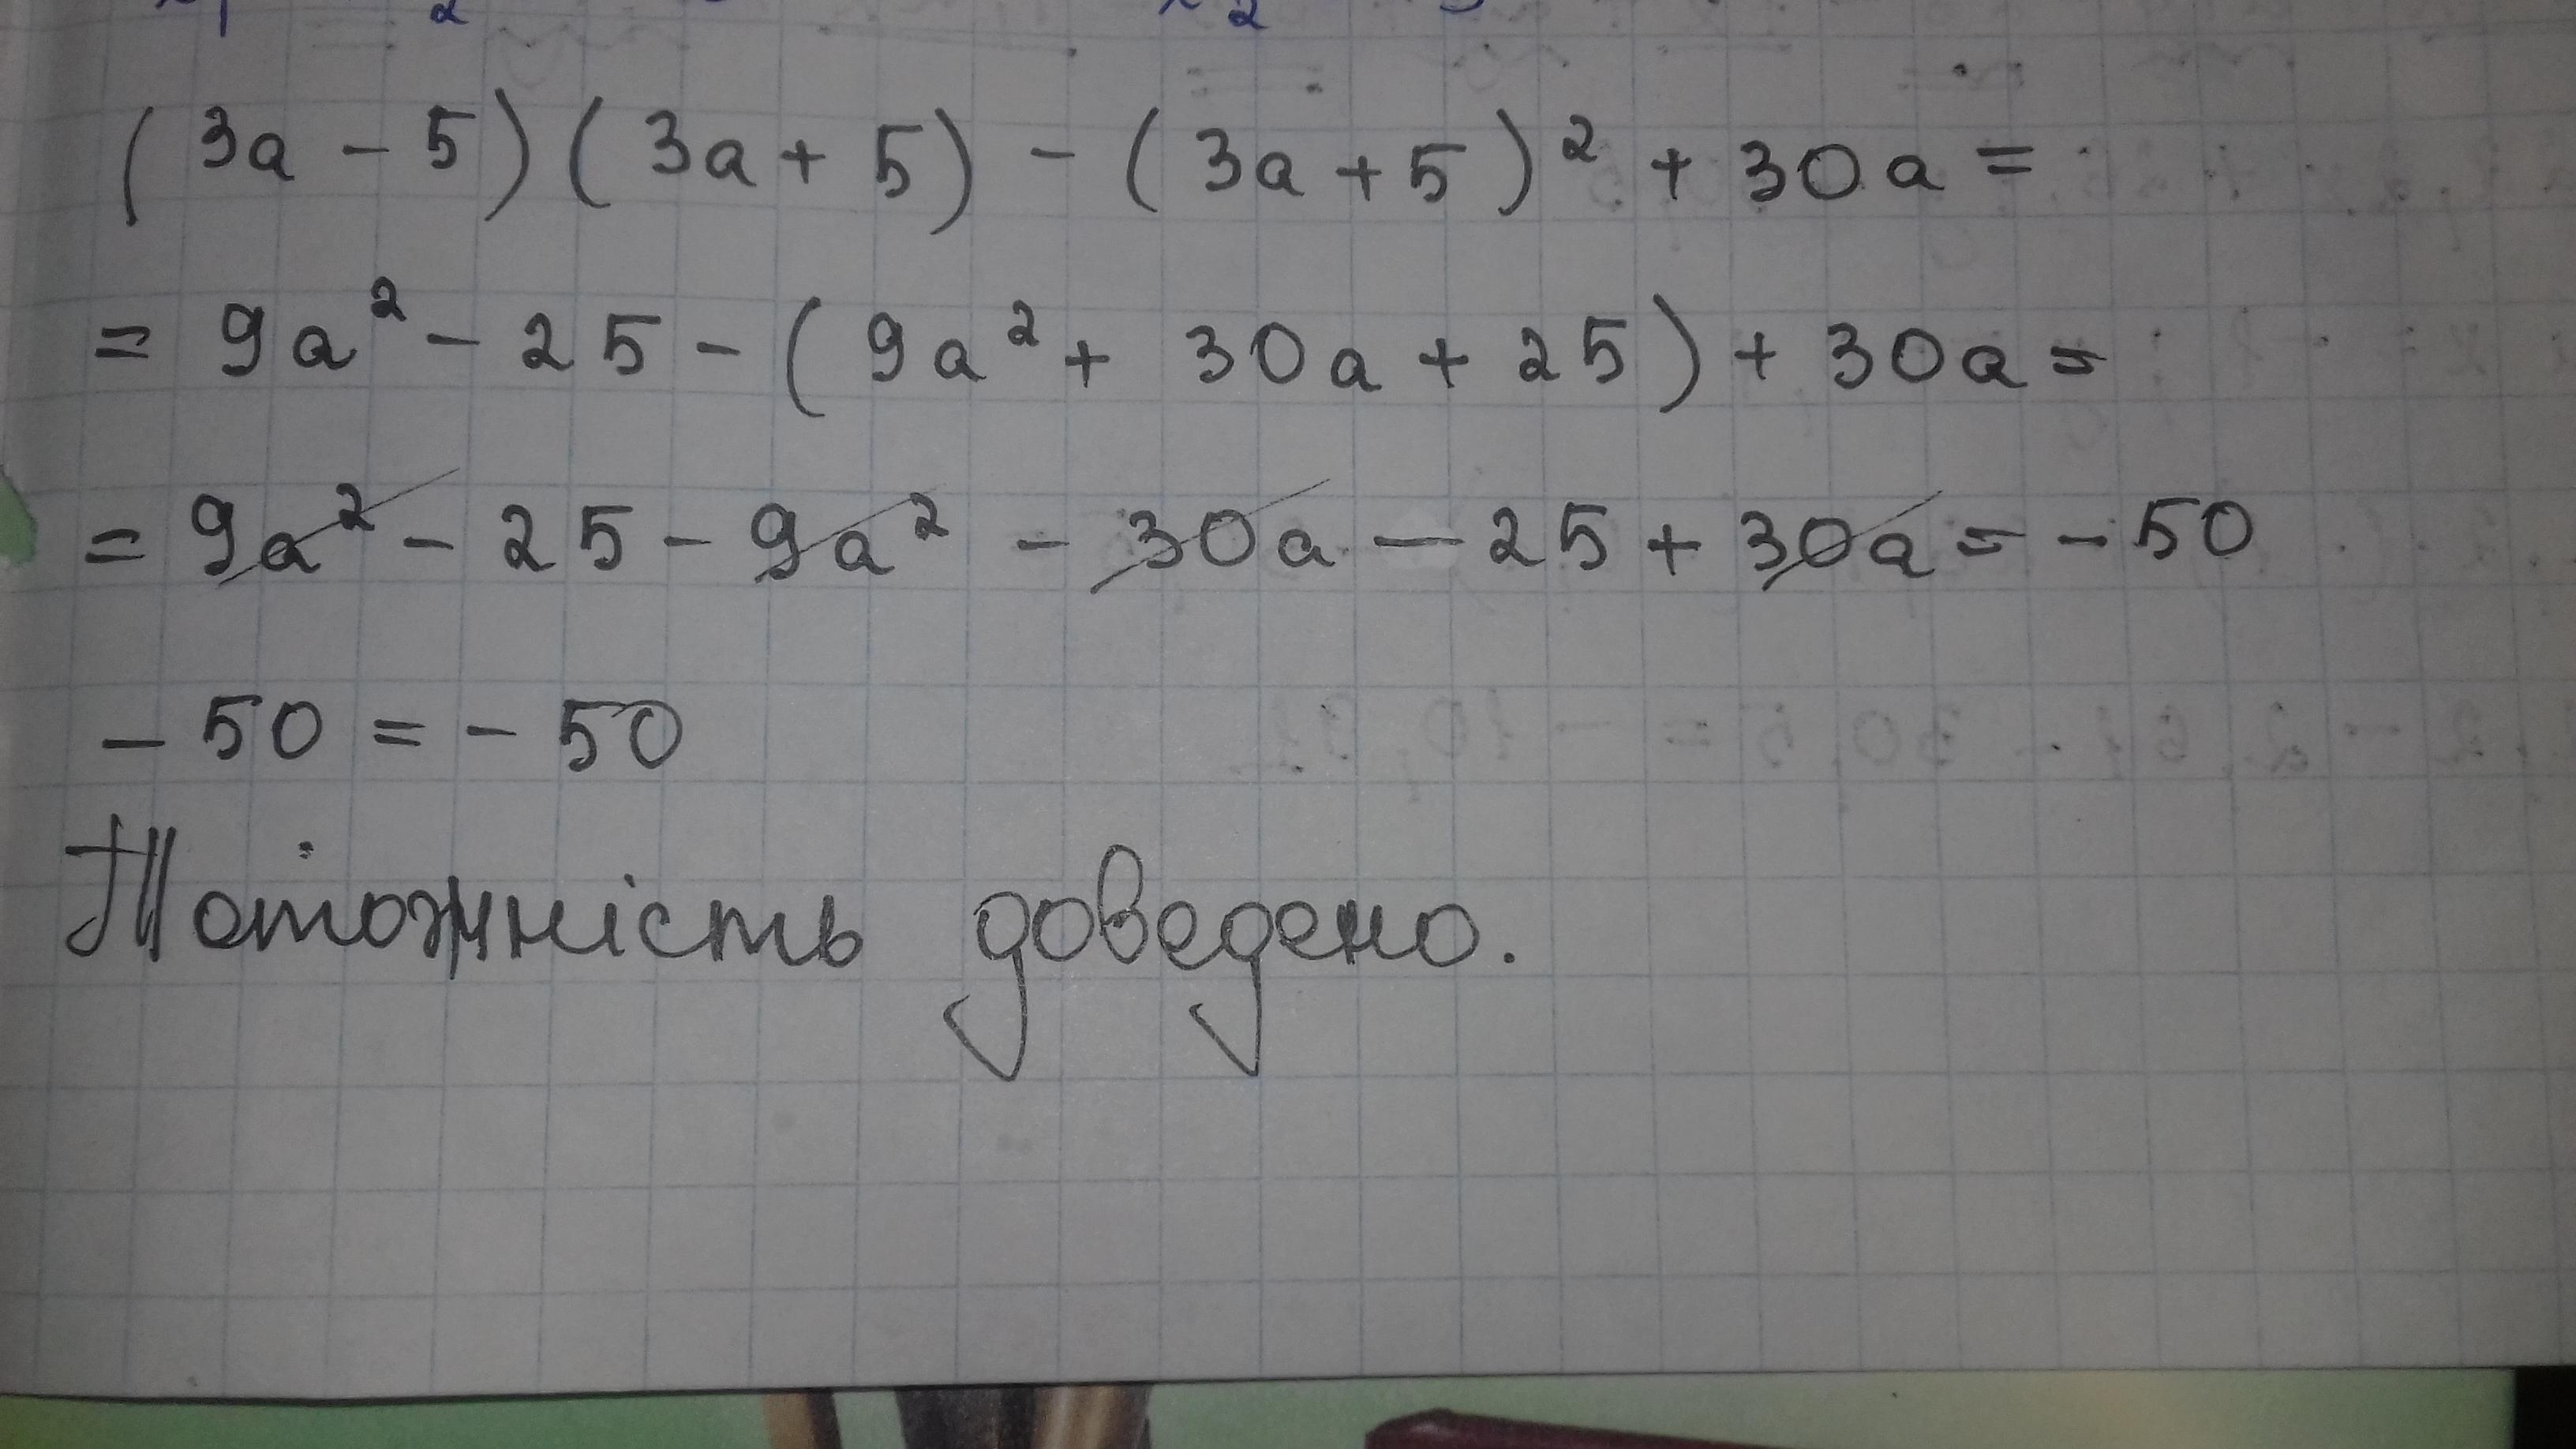 (3a - 5)(3a + 5) - (3a + 5)² + 30a =
= 9a² - 25 - (9a² + 30a + 25) + 30a =
= 9a² - 25 - 9a² - 30a - 25 + 30a = - 50
- 50 = - 50
Тотожність доведено.